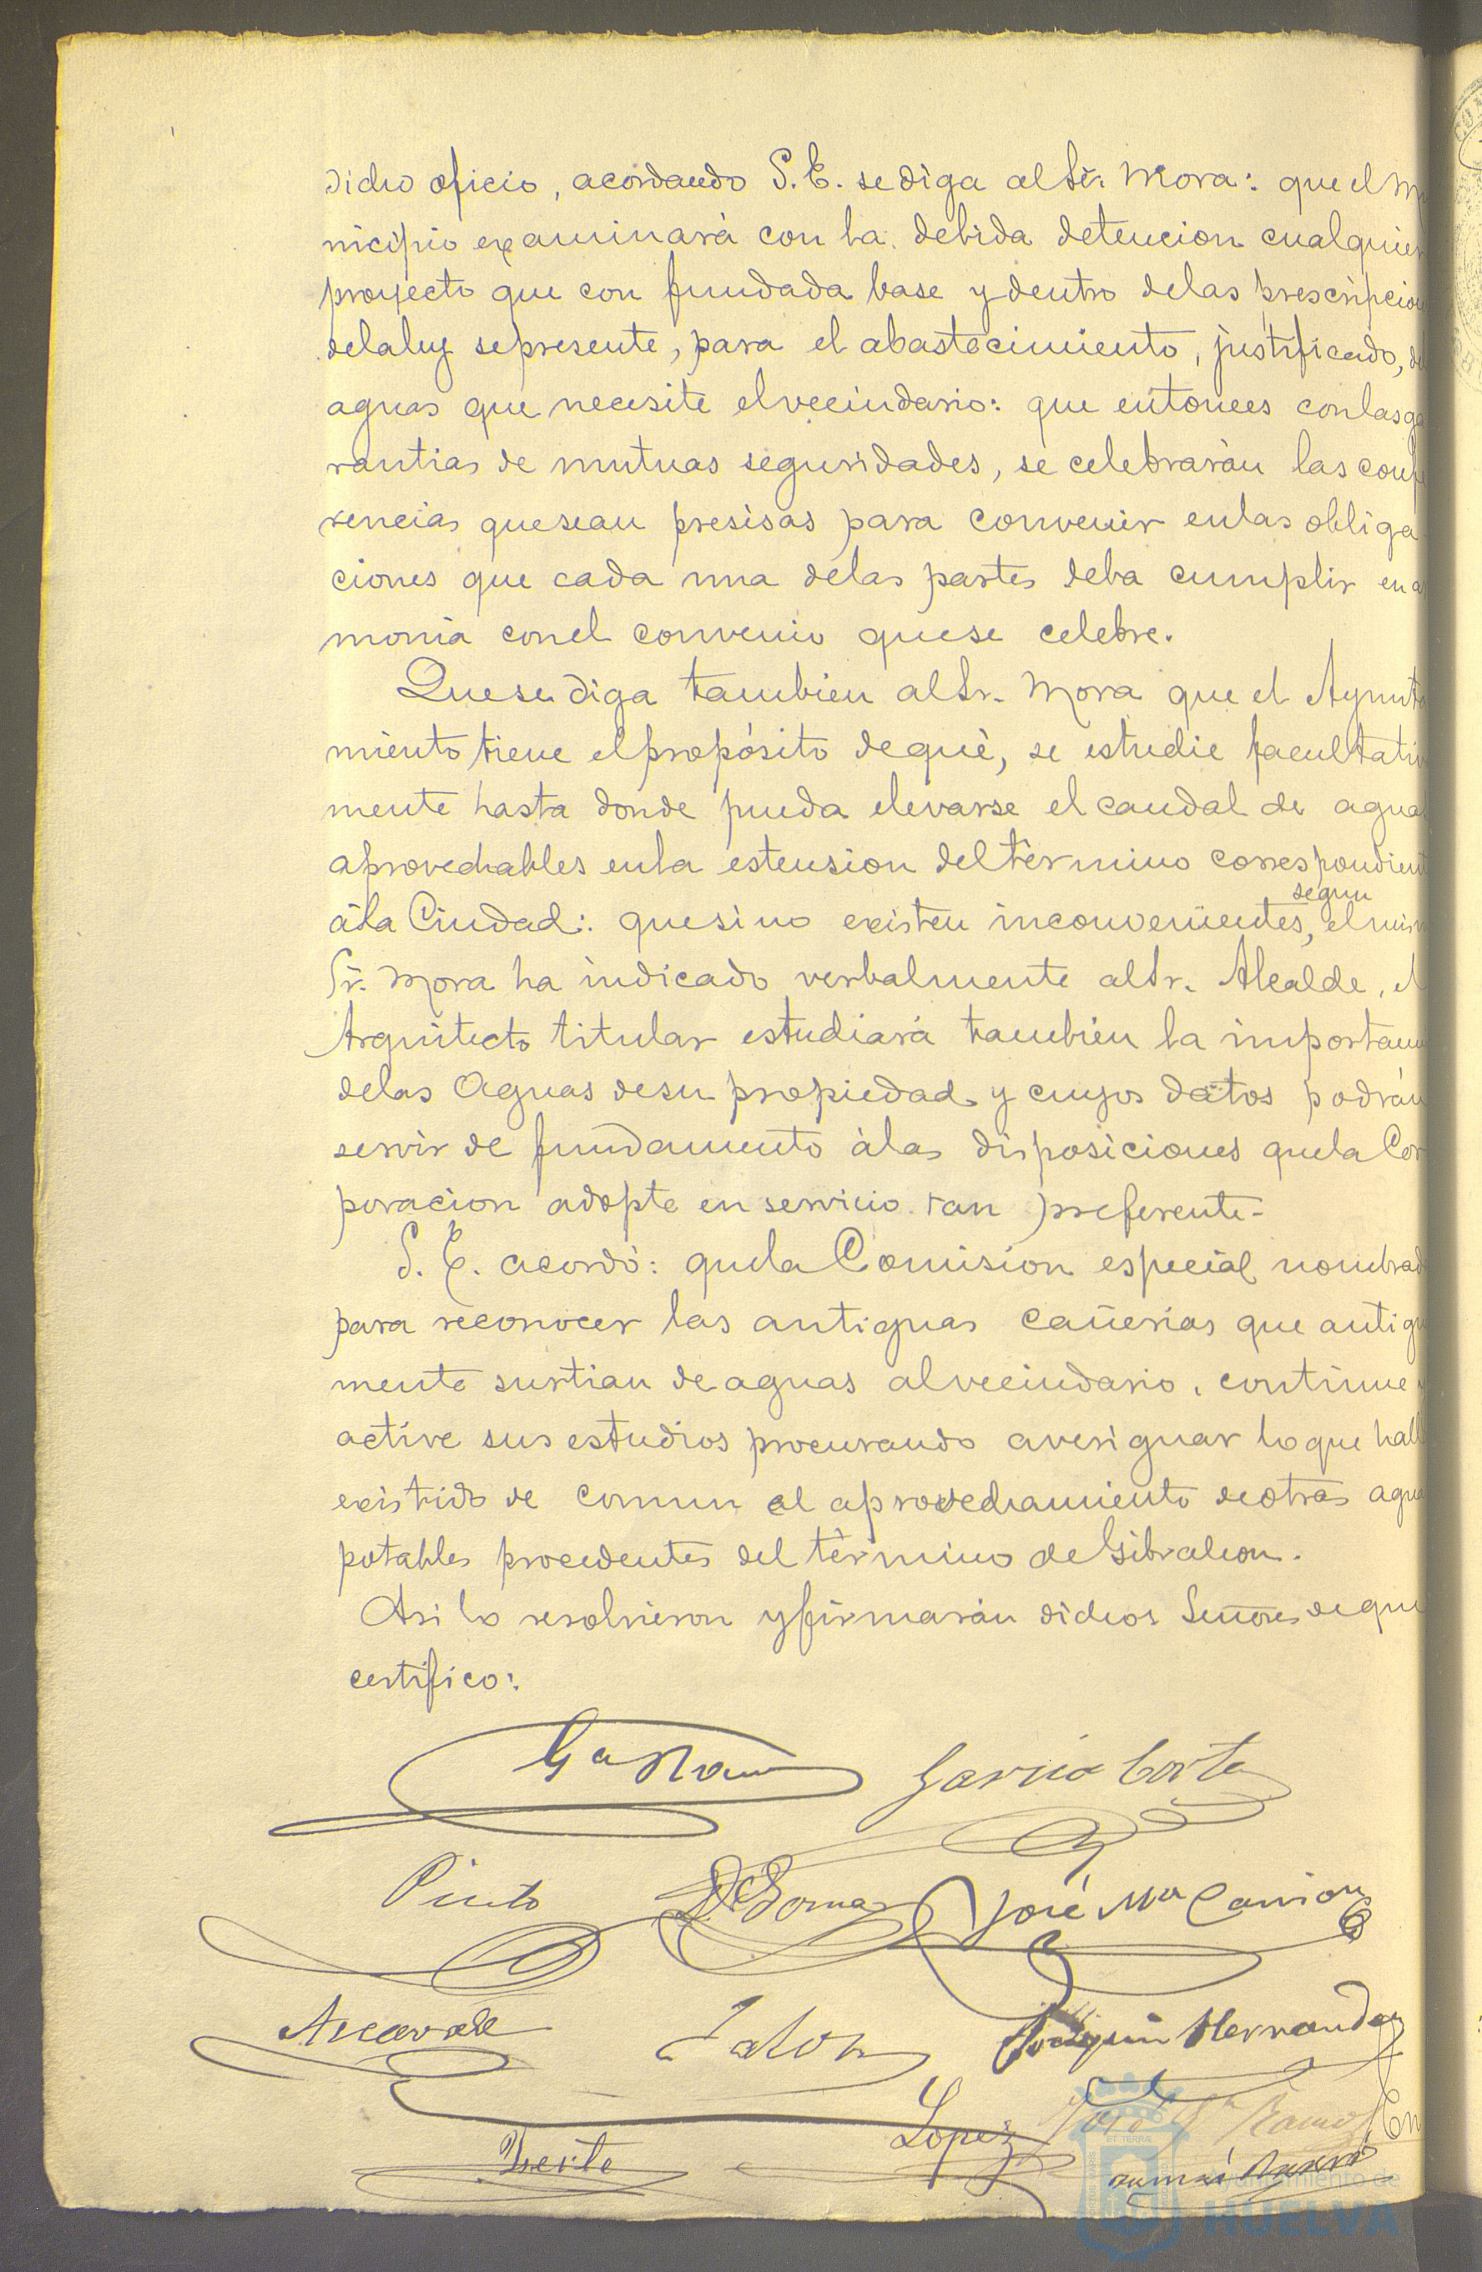 dicho oficio, acordando S.E. se diga al Sr. Mora: que el Mu
nicipio examinará con la debida detencion cualquier
proyecto que con fundada base y dentro delas prescripcion
dela ley sepresente, para el abastecimiento, justificado, de
aguas que necesite elvecindario: que entonces conlas ga
rantias de mutuas seguridades, se celebraràn las confe
rencias quesean presisas para convenir enlas obliga
ciones que cada una delas partes deba cumplir en a
monia conel convenio quese celebre.
Quese diga tambien alSr. Mora que el Ayunta
miento tiene elpropósito dequè, se estudie facultativ
mente hasta donde pueda elevarse el caudal de aguas
aprovechables enla estension deltèrmino correspondient
àla Ciudad: quesino existen inconvenientes, segun elmism
Sr. Mora ha indicado verbalmente alSr. Alcalde, el
Arquitecto titular estudiarà tambièn la importan
delas Aguas desu propiedad y cuyos datos podràn
servir de fundamento àlas disposiciones quela Cor
poracion adopte en servicio tan preferente-
S. E. acordó: quela Comision especial nombrad
para reconocer las antiguas cañerias que antigu
mente surtian de aguas alvecindario, continue y
active sus estudios procurando averiguar loque hall
existido de comun al aprovechamiento deotras agua
potables procedentes del tèrmino de Gibraleon.
Asi lo resolvieron y firmaràn dichos Señores deque
certifico:
Ga Ramo García Cortes
Pinto Gomez José Ma Carrion
Talon Joaquin Hernandez
Lopez José Ga Ramos
Ayuntamiento de
HUELVA